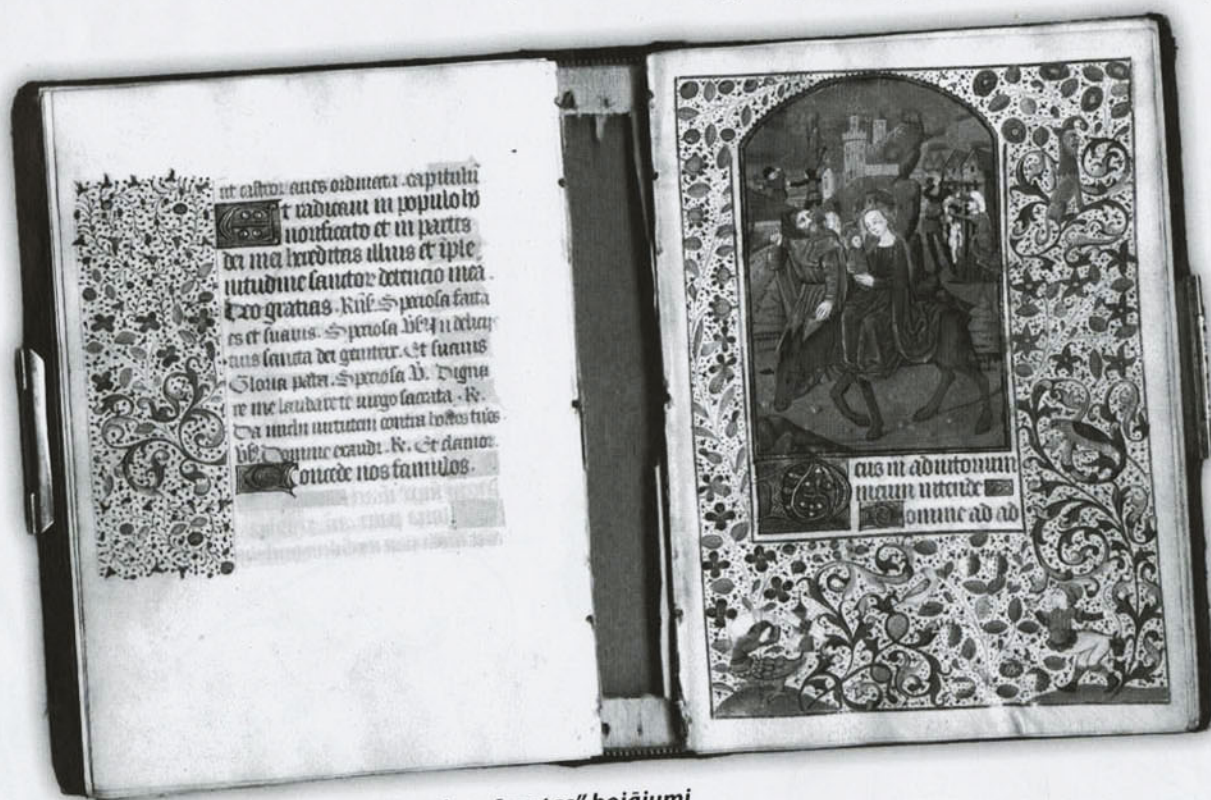 ut castror acies ordinata. capitulū
Et radicaui in populo ho
norificato et in partes
dei mei hereditas illius et i ple
nitudine sanctor detencio mea.
Deo gratias. Speciosa facta
es et suauis. Speciosa In delicijs
tuis sancta dei genitrix. Et suauis
Gloria patri. Speciosa V. Digna
re me laudare te uirgo sacrata. R.
Da michi uirtutem contra hostes tuos
Domine exaudi. R. Et clamor.
Concede nos famulos.
Deus in adiutorium
meum intende
Domine ad ad
bojājumi